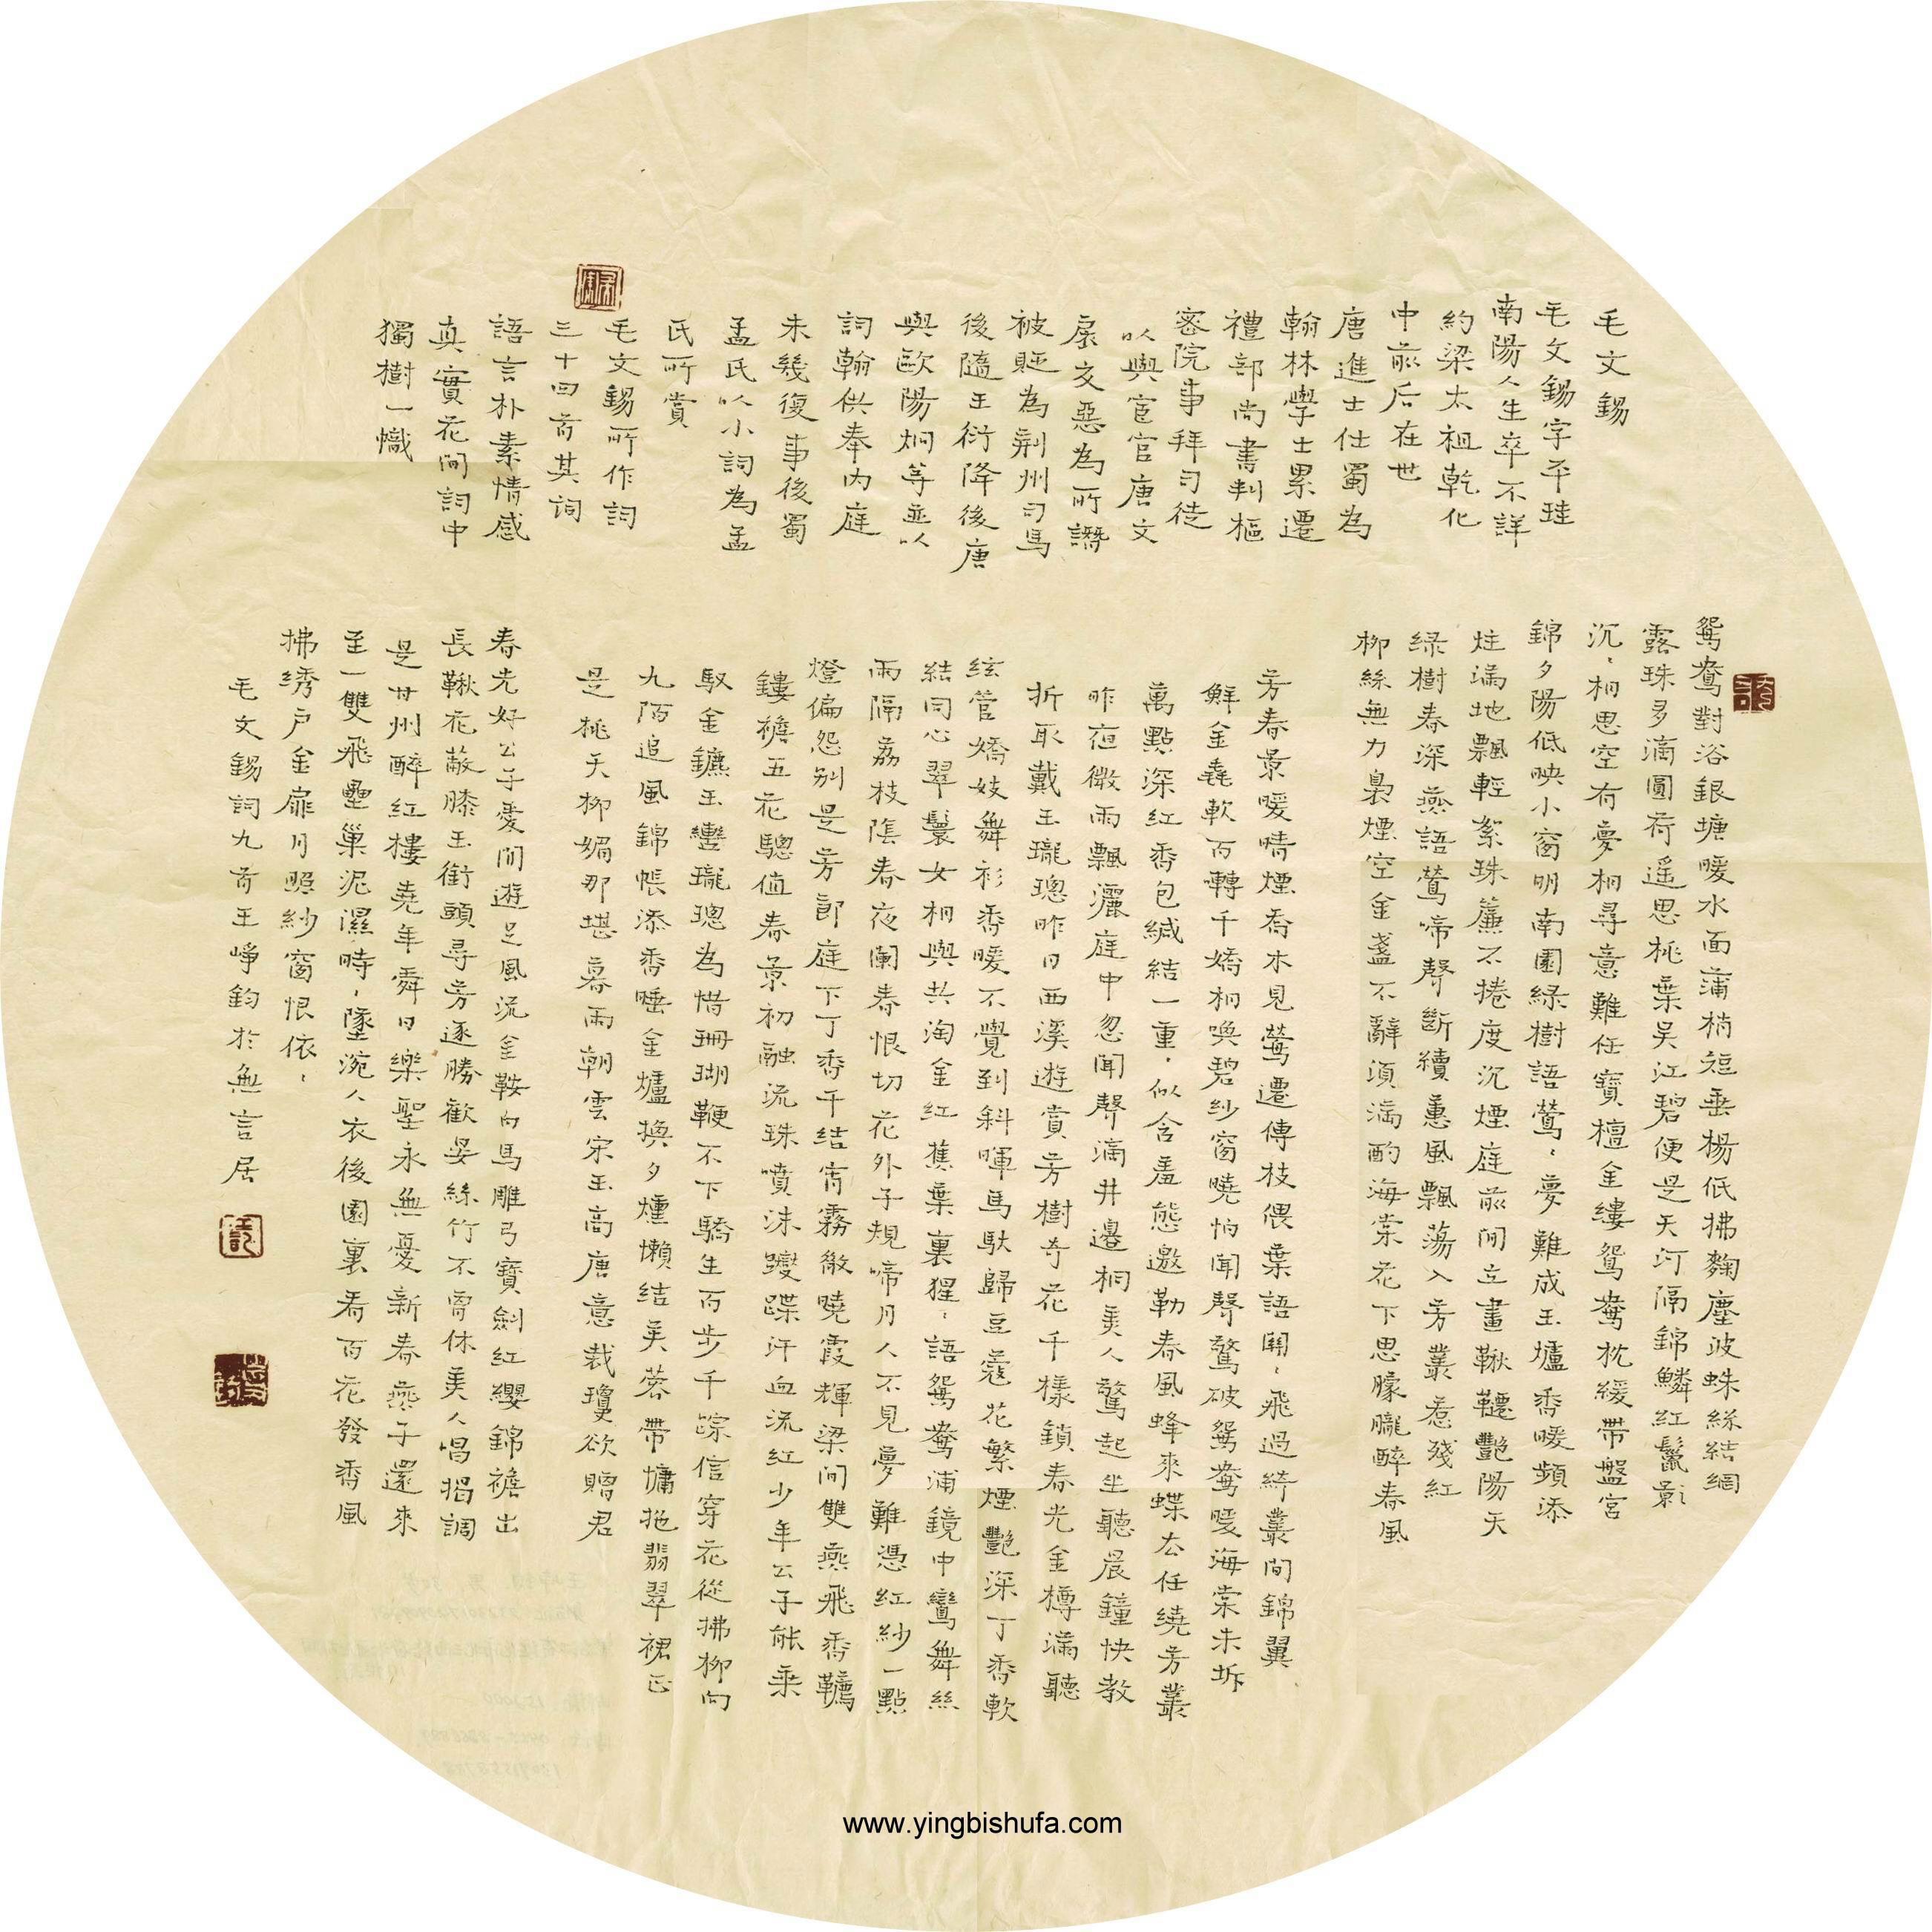 毛文錫
毛文錫字平珪
南陽人生卒不詳
約梁太祖乾化
中前后在世
唐進士仕蜀為
翰林學士累遷
禮部尚書判樞
密院事拜司徒
以與宦官唐文
扆交惡為所譖
被貶為荆州司馬
後隨王衍降後唐
與歐陽炯等並以
詞翰供奉内庭
未幾復事後蜀
孟氏以小詞為孟
氏所賞
毛文錫所作詞
三十四首其詞
語言朴素情感
真實花间詞中
獨樹一幟
鴛鴦對浴銀塘暖水面蒲梢短垂楊低拂麴塵波蛛絲結網
露珠多滴圓荷遥思桃葉吴江碧便是天河隔錦鱗紅鬣影
沉、相思空有夢相尋意難任寶檀金縷鴛鴦枕綬带盤宮
錦夕陽低映小窗明南園緑樹語鶯、夢難成玉爐香暖頻添
炷满地飄輕絮珠簾不捲度沉煙庭前间立畫鞦韆艷陽天
緑樹春深燕語鶯啼聲斷續蕙風飄蕩入芳叢惹殘紅
柳絲無力裊煙空金盞不辭須满酌海棠花下思朦朧醉春風
芳春景暖晴煙喬木見鶯遷傳枝偎葉語關、飛過綺叢间錦翼
鮮金毳軟百囀千嬌相喚碧纱窗曉怕闻聲驚破鴛鴦暖海棠未坼
萬點深紅香包緘結一重、似含羞態邀勒春風蜂來蝶去任繞芳叢
昨夜微雨飄灑庭中忽聞聲滴井邊桐美人驚起坐聽晨鐘快教
折取戴玉瓏璁昨日西溪遊賞芳樹奇花千樣鎖春光金樽满聽
絃管嬌妓舞衫香暖不覺到斜暉馬馱歸豆蔻花繁煙艷深丁香軟
結同心翠鬟女相與共淘金紅蕉葉裏猩、語鴛鴦浦鏡中鸞舞絲
雨隔荔枝陰春夜闌春恨切花外子規啼月人不見夢難憑紅紗一點
燈偏怨别是芳節庭下丁香千結宵霧散曉霞輝梁间雙燕飛香韉
鏤襜五花驄值春景初融流珠噴沫躞蹀汗血流紅少年公子能乘
馭金鑣玉轡瓏璁為惜珊瑚鞭不下驕生百步千蹤信穿花從拂柳向
九陌追風錦帳添香睡金爐換夕燻懶結芙蓉帶慵拖翡翠裙正
是桃夭柳媚那堪暮雨朝雲宋玉高唐意裁瓊欲贈君
春光好公子愛閒遊足風流金鞍白馬雕弓寶劍紅纓錦襜出
長鞦花蔽膝玉銜頭尋芳逐勝歡宴絲竹不曾休美人唱揭調
是甘州醉紅樓堯年舜日樂聖永無憂新春燕子還來
至一雙飛壘巢泥濕時、墜涴人衣後園裏看百花發香風
拂绣户金扉月照紗窗恨依、
毛文錫詞九首王崢鈞於無言居
www.yingbishufa.com